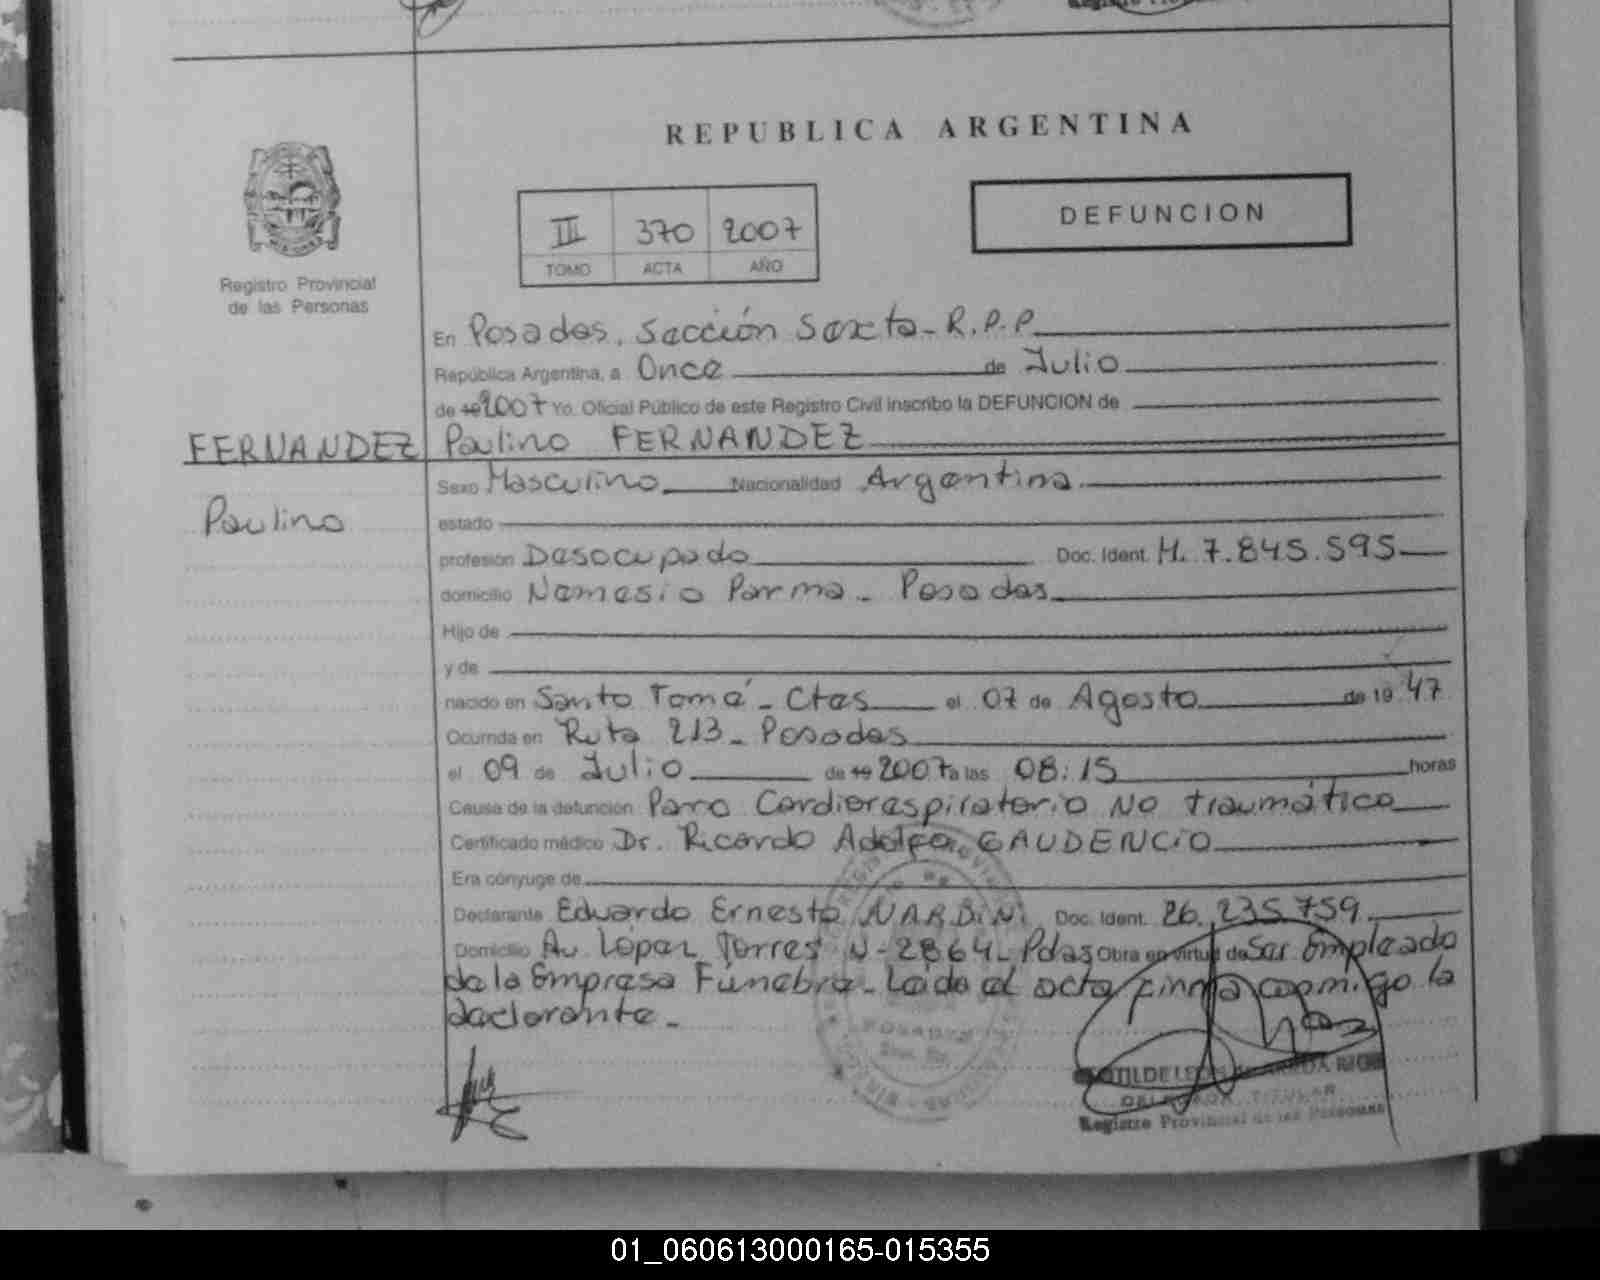 REPUBLICA ARGENTINA
DEFUNCION
III 370 2007
TOMO ACTA AÑO
Registro Provincial
de las Personas
En Posadas, Sección Sexta - R.P.P.
República Argentina, a Once de Julio
de 19 2007 Yo, Oficial Público de este Registro Civil inscribo la DEFUNCION de
FERNANDEZ Paulino FERNANDEZ
Sexo Masculino Nacionalidad Argentina
Paulino
estado
profesión Desocupado Doc. Ident. M. 7.845.595
domicilio Nemesio Parma - Posadas
Hijo de
y de
nacido en Santo Tomé - Ctes el 07 de Agosto de 19 47
Ocurrida en Ruta 213 - Posadas
el 09 de Julio de 19 2007 a las 08:15 horas
Causa de la defunción Paro Cardiorespiratorio No traumático
Certificado médico Dr. Ricardo Adolfo GAUDENCIO
Era cónyuge de
Declarante Eduardo Ernesto NARDINI Doc. Ident. 26.235.759
Domicilio Av. López Torres N- 2864 - Pdas Obra en virtud de Ser Empleado
de la Empresa Fúnebre - Leída el acta firma conmigo la
declarante -
DELEGADA TITULAR
Registro Provincial de las Personas
01_060613000165-015355